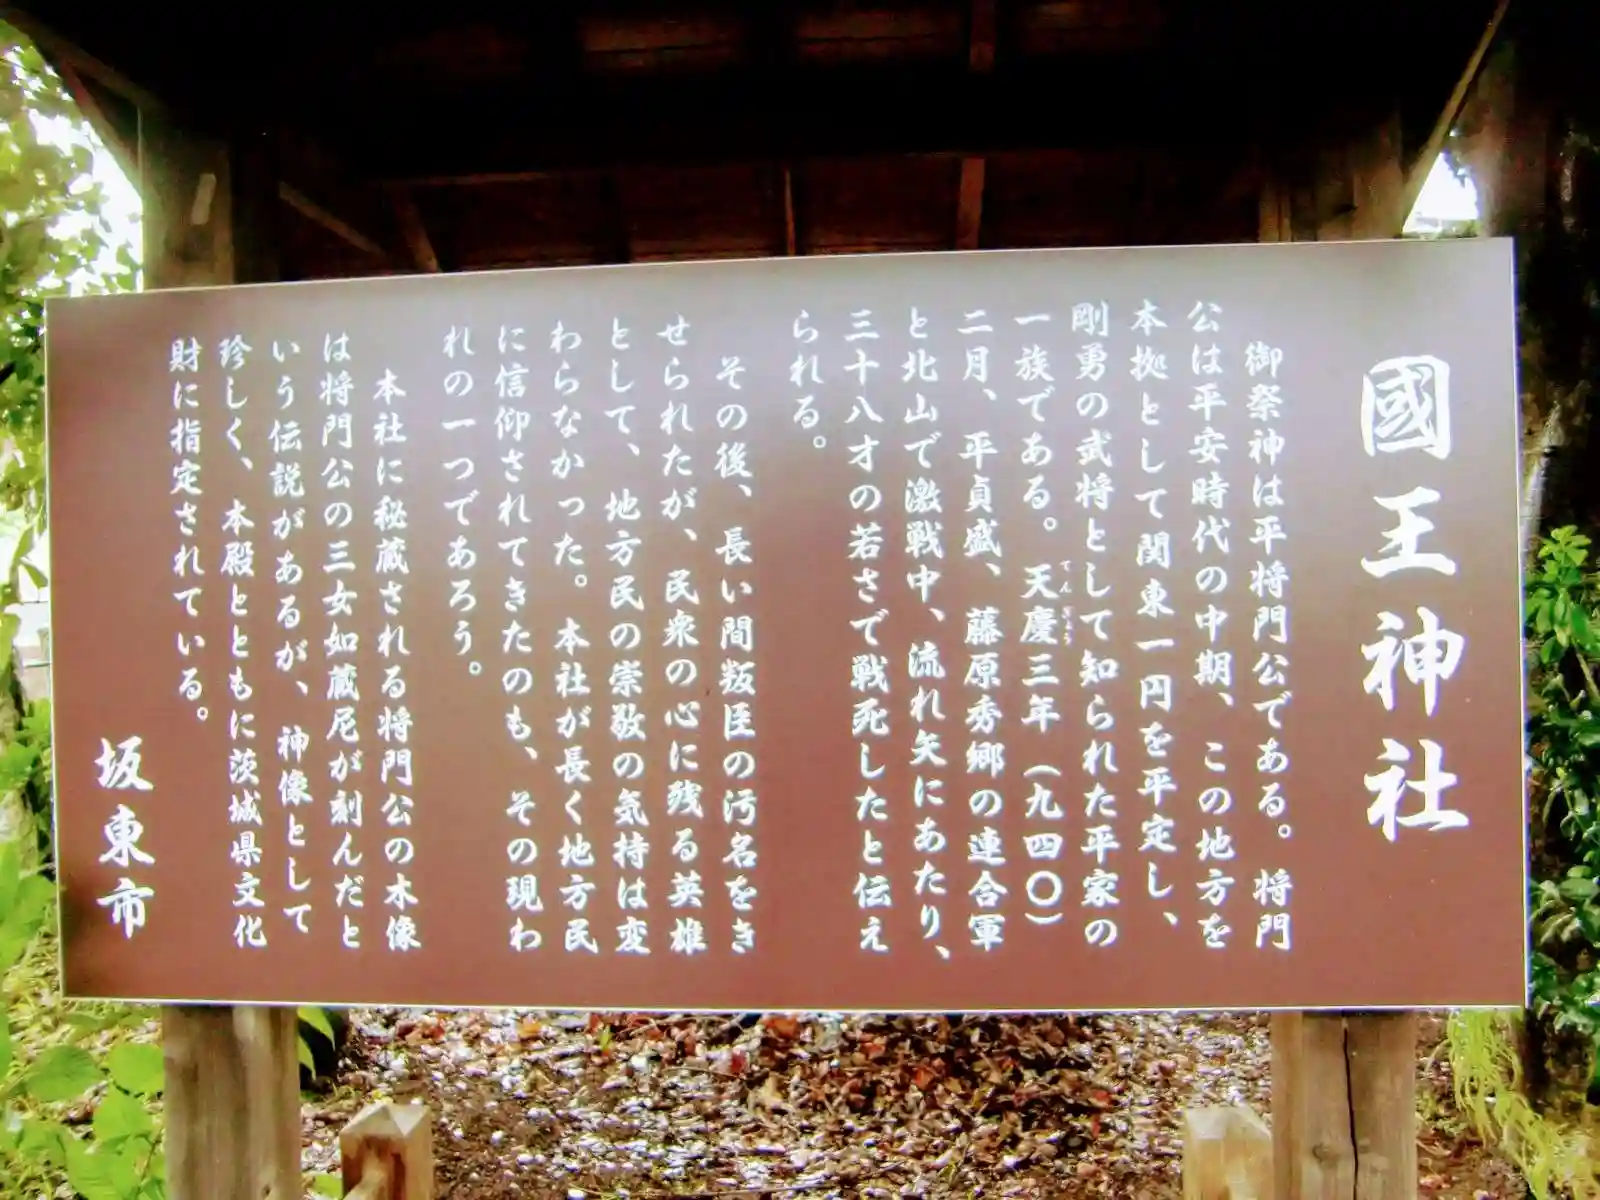 國王神社
御祭神は平将門公である。将門
公は平安時代の中期、この地方を
本拠として関東一円を平定し、
剛勇の武将として知られた平家の
一族である。天慶三年(九四〇)
てんぎょう
二月、平貞盛、藤原秀郷の連合軍
と北山で激戦中、流れ矢にあたり、
三十八才の若さで戦死したと伝え
られる。
その後、長い間叛臣の汚名をき
せられたが、民衆の心に残る英雄
として、地方民の崇敬の気持は変
わらなかった。本社が長く地方民
に信仰されてきたのも、その現わ
れの一つであろう。
本社に秘蔵される将門公の木像
は将門公の三女如蔵尼が刻んだと
いう伝説があるが、神像として
珍しく、本殿とともに茨城県文化
財に指定されている。
坂東市